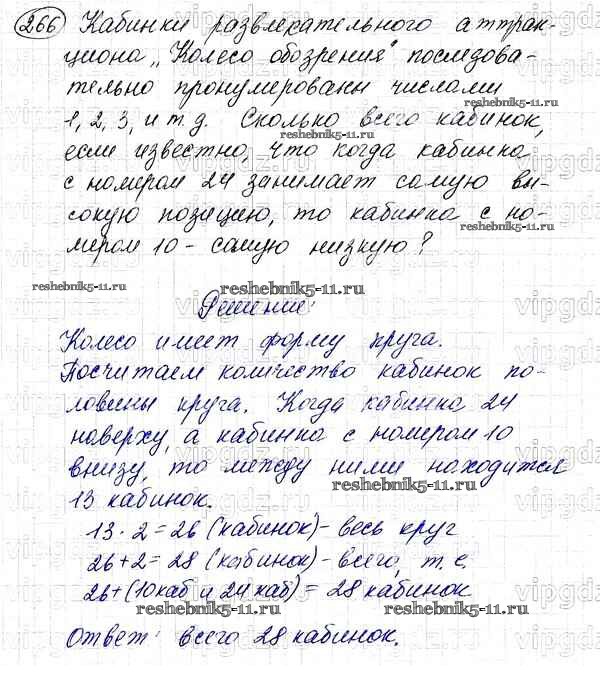 266 Кабинки развлекательного аттрак-
циона „Колесо обозрения" последова-
тельно пронумерованы числами
1, 2, 3, и т.д. Сколько всего кабинок,
reshebnik5-11.ru
если известно, что когда кабинка
с номером 24 занимает самую вы-
сокую позицию, то кабинка с но-
reshebnik5-11.ru
мером 10 - самую низкую?
reshebnik5-11.ru
reshebnik5-11.ru
Решение:
Колесо имеет форму круга.
Посчитаем количество кабинок по-
ловины круга. Когда кабинка 24
наверху, а кабинка с номером 10
внизу, то между ними находится
reshebnik5-11.ru
13 кабинок.
13 · 2 = 26 (кабинок) - весь круг
26 + 2 = 28 (кабинок) - всего, т. е.
26 + (10 каб и 24 каб) = 28 кабинок
reshebnik5-11.ru
reshebnik5-11.ru
Ответ: всего 28 кабинок.